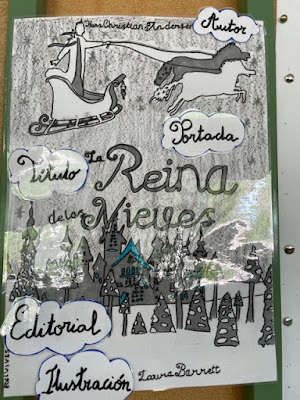 Hans Christian Andersen
Autor
Portada
Título
La Reina
de las Nieves
Editorial
Ilustración
Laura Barrett